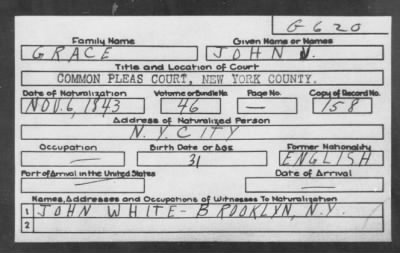 G620
Family Name Given Name or Names
GRACE JOHN J.
Title and Location of Court
COMMON PLEAS COURT, NEW YORK COUNTY.
Date of Naturalization Volume or Bundle No. Page No. Copy of Record No.
NOV. 6, 1843 46 — 158
Address of Naturalized Person
N.Y. CITY
Occupation Birth Date or Age Former Nationality
— 31 ENGLISH
Port of Arrival in the United States Date of Arrival
— —
Names, Addresses and Occupations of Witnesses To Naturalization
1 JOHN WHITE - BROOKLYN, N.Y.
2